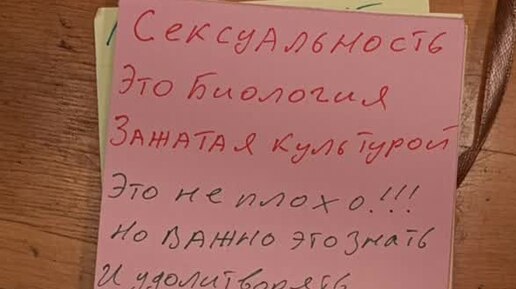 Сексуальность
Это биология
Зажатая культурой
Это не плохо!!!
Но важно это знать
и удолитворять